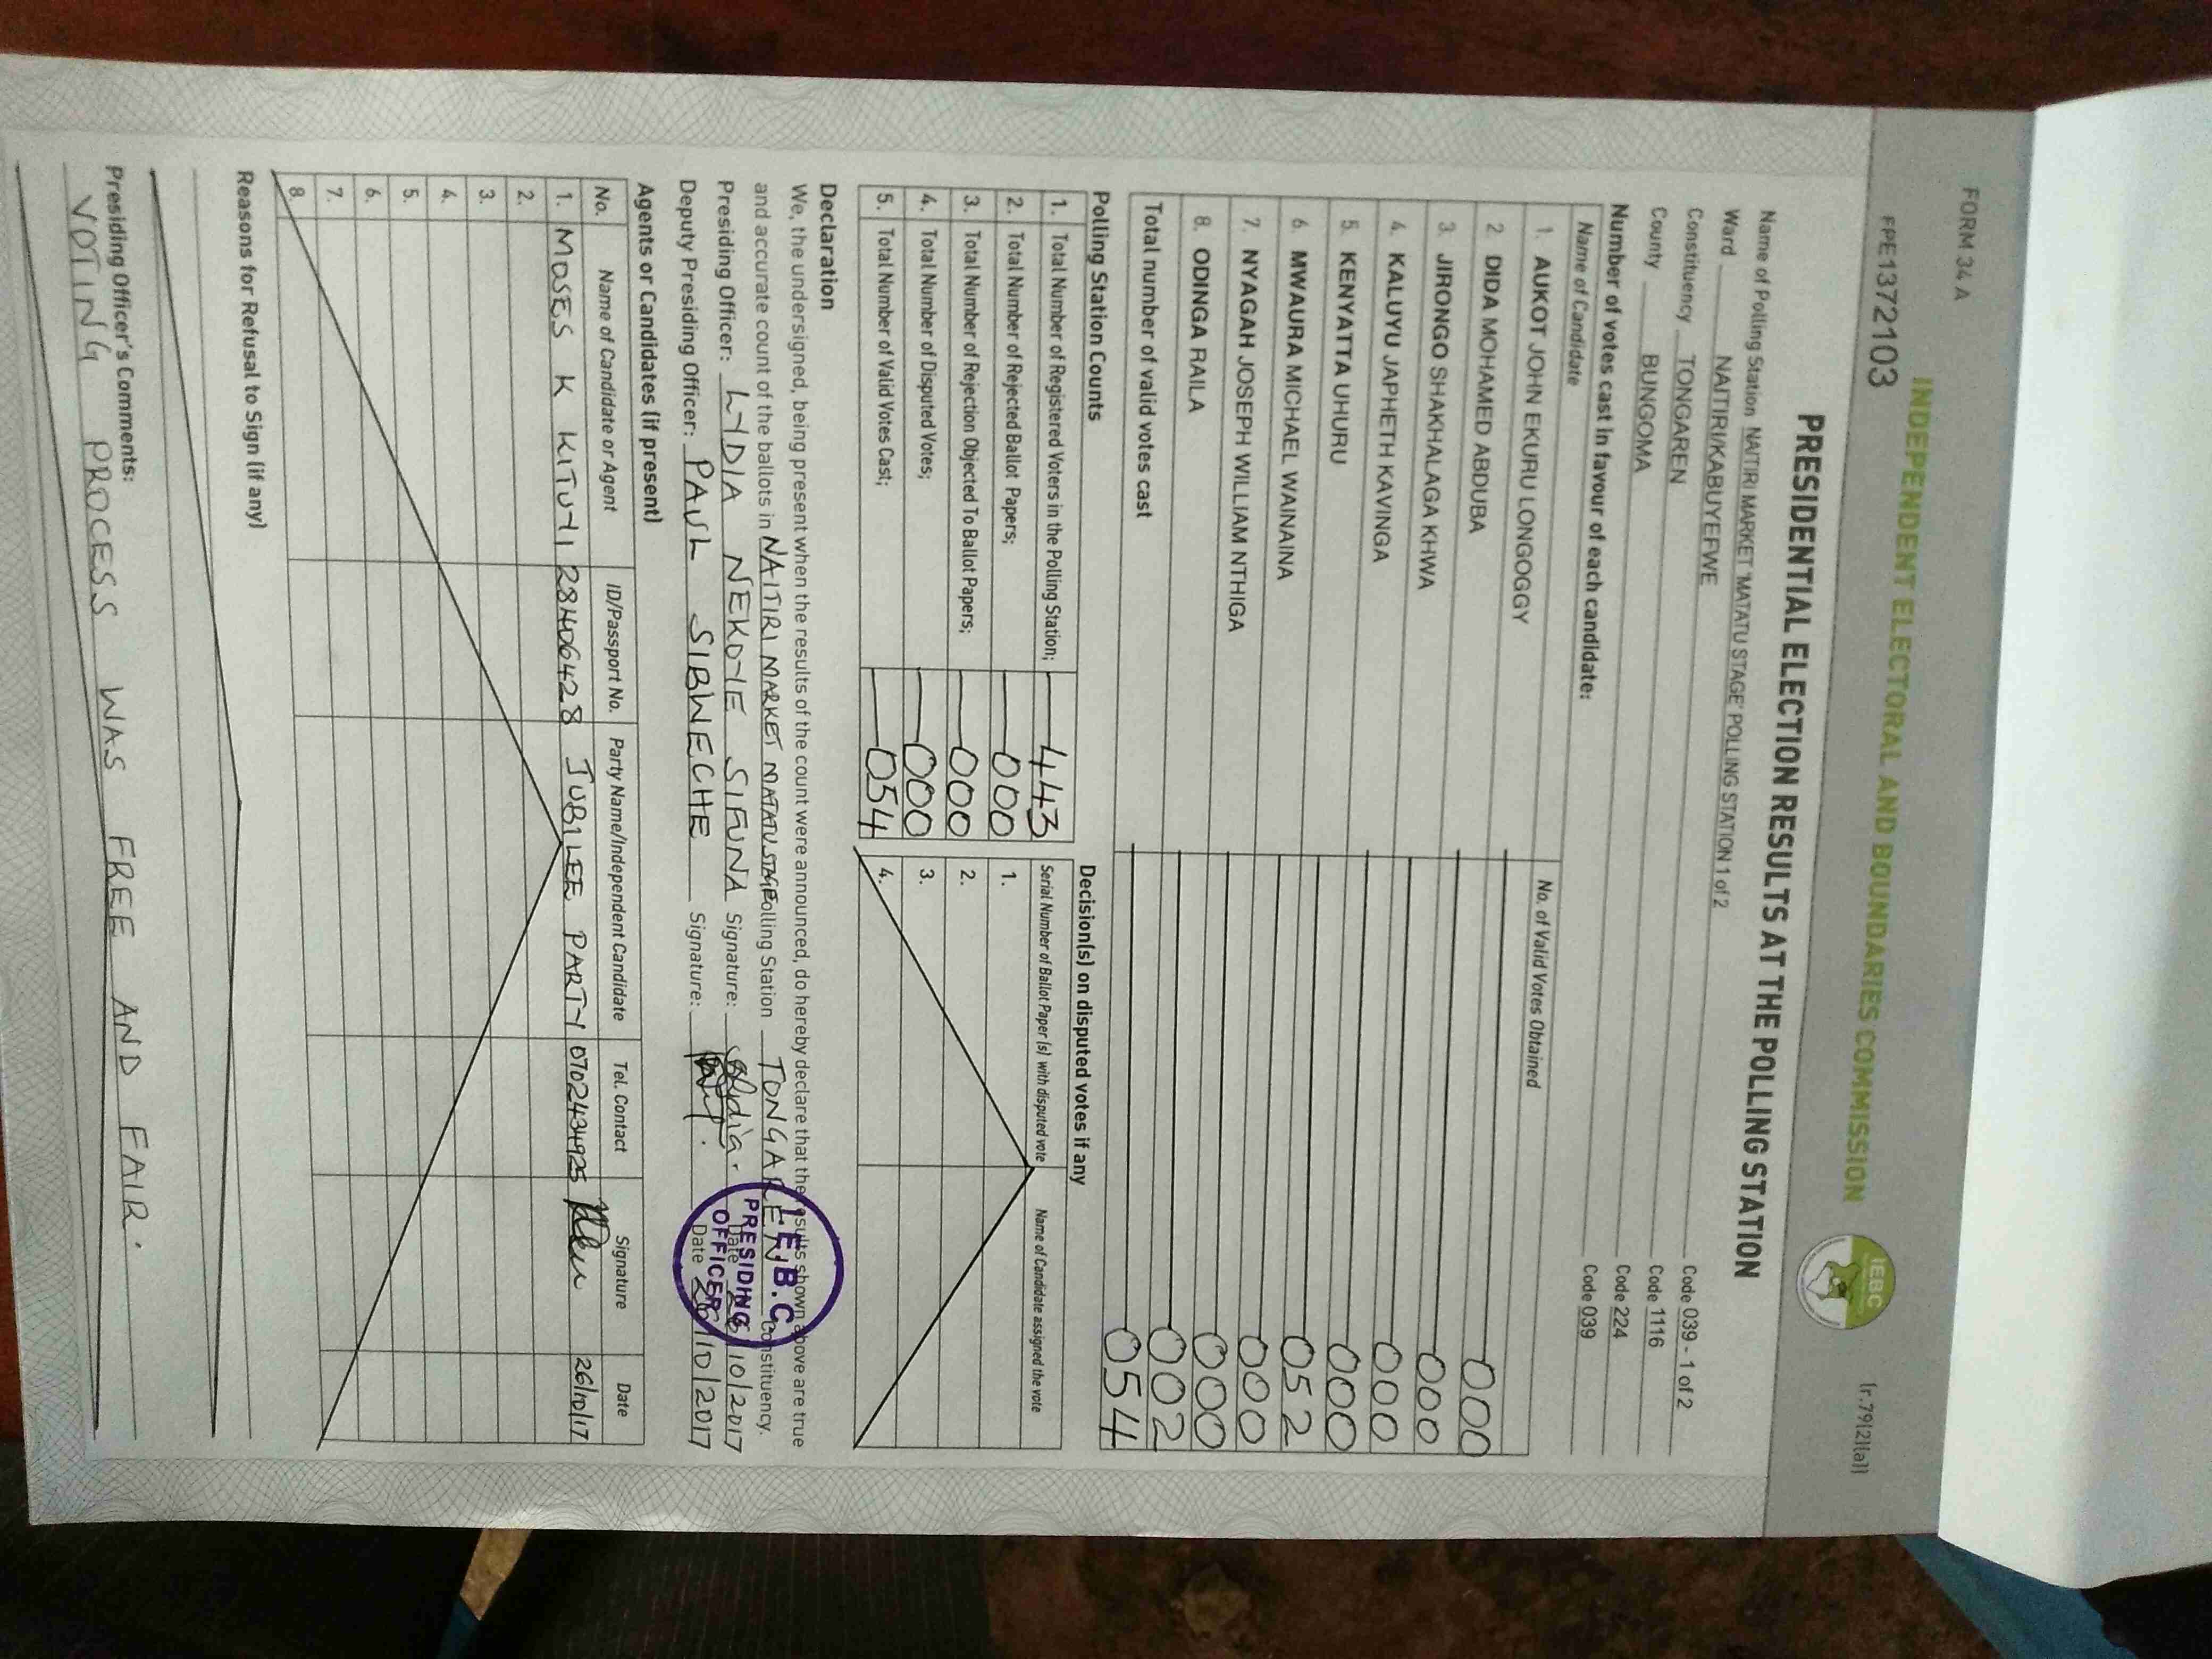 FORM 34 A
(r.79(2)(a))
INDEPENDENT ELECTORAL AND BOUNDARIES COMMISSION
IEBC
FPE1372103
PRESIDENTIAL ELECTION RESULTS AT THE POLLING STATION
Name of Polling Station NAITIRI MARKET 'MATATU STAGE' POLLING STATION 1 of 2 Code 039 - 1 of 2
Ward NAITIRI/KABUYEFWE Code 1116
Constituency TONGAREN Code 224
County BUNGOMA Code 039
Number of votes cast in favour of each candidate:
Name of Candidate No. of Valid Votes Obtained
1. AUKOT JOHN EKURU LONGOGGY 000
2. DIDA MOHAMED ABDUBA 000
3. JIRONGO SHAKHALAGA KHWA 000
4. KALUYU JAPHETH KAVINGA 000
5. KENYATTA UHURU 052
6. MWAURA MICHAEL WAINAINA 000
7. NYAGAH JOSEPH WILLIAM NTHIGA 000
8. ODINGA RAILA 002
Total number of valid votes cast 054
Polling Station Counts
1. Total Number of Registered Voters in the Polling Station; 443
2. Total Number of Rejected Ballot Papers; 000
3. Total Number of Rejection Objected To Ballot Papers; 000
4. Total Number of Disputed Votes; 000
5. Total Number of Valid Votes Cast; 054
Decision(s) on disputed votes if any
Serial Number of Ballot Paper (s) with disputed vote Name of Candidate assigned the vote
1.
2.
3.
4.
Declaration
We, the undersigned, being present when the results of the count were announced, do hereby declare that the results shown above are true
and accurate count of the ballots in NAITIRI MARKET MATATU STAGE Polling Station TONGAREN Constituency.
Presiding Officer: LYDIA NEKOYE SIFUNA Signature: Lydia. Date 26/10/2017
Deputy Presiding Officer: PAUL SIBWECHE Signature: Date 26/10/2017
I.E.B.C
PRESIDING
OFFICER
Agents or Candidates (if present)
No. Name of Candidate or Agent ID/Passport No. Party Name/Independent Candidate Tel. Contact Signature Date
1. MOSES K KITUYI 28406428 JUBILEE PARTY 0702434925 26/10/17
2.
3.
4.
5.
6.
7.
8.
Reasons for Refusal to Sign (if any)
Presiding Officer's Comments:
VOTING PROCESS WAS FREE AND FAIR.